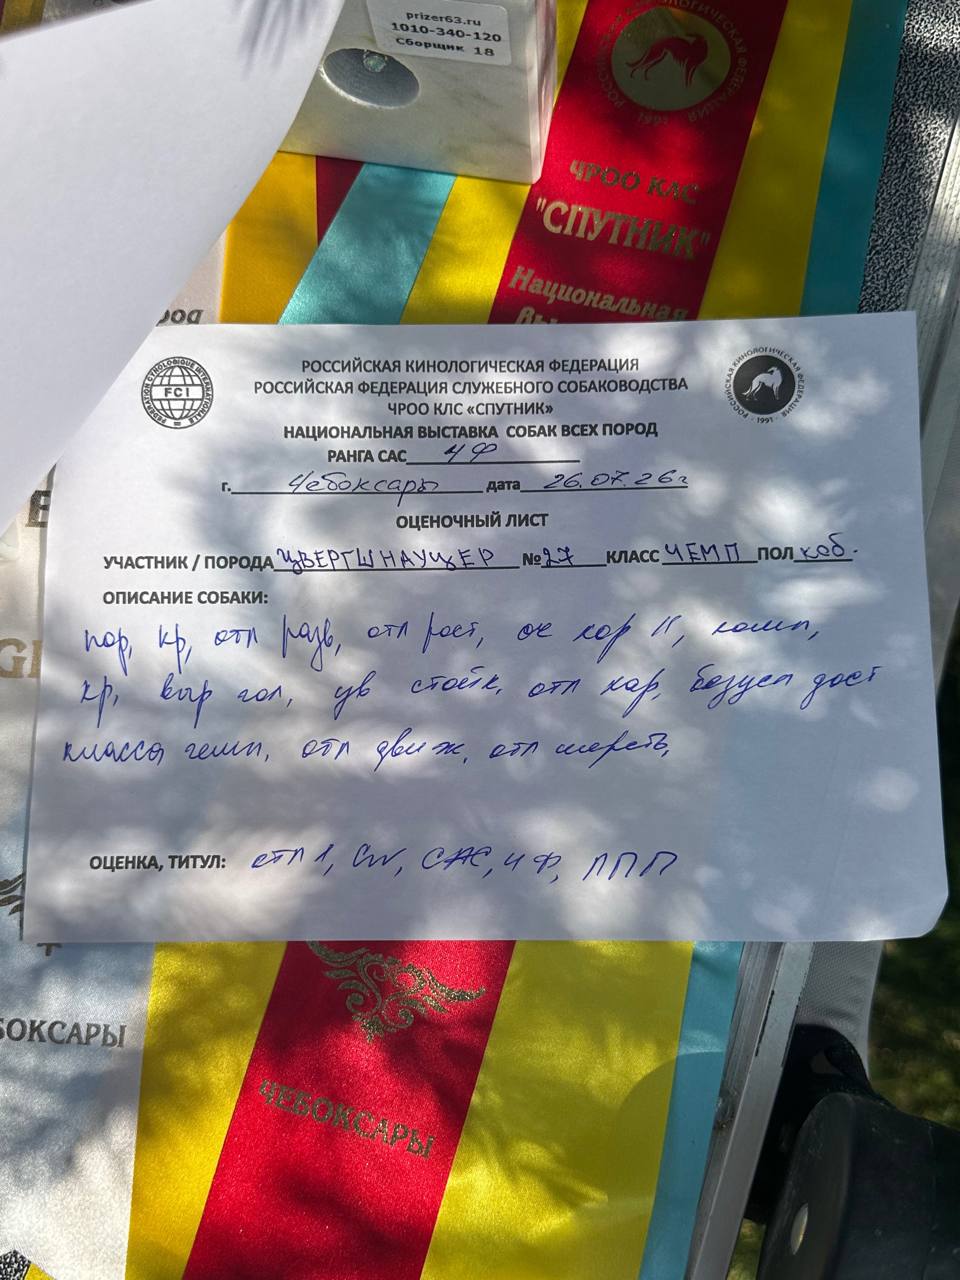 prizer63.ru
1010-340-120
Сборщик 18
РОССИЙСКАЯ КИНОЛОГИЧЕСКАЯ ФЕДЕРАЦИЯ
1991
ЧРОО КЛС
"СПУТНИК"
Национальная
FEDERATION CYNOLOGIQUE INTERNATIONALE
FCI
РОССИЙСКАЯ КИНОЛОГИЧЕСКАЯ ФЕДЕРАЦИЯ
РОССИЙСКАЯ ФЕДЕРАЦИЯ СЛУЖЕБНОГО СОБАКОВОДСТВА
ЧРОО КЛС «СПУТНИК»
НАЦИОНАЛЬНАЯ ВЫСТАВКА СОБАК ВСЕХ ПОРОД
РАНГА САС ЧФ
г. Чебоксары дата 26.07.26г
РОССИЙСКАЯ КИНОЛОГИЧЕСКАЯ ФЕДЕРАЦИЯ
1991
ОЦЕНОЧНЫЙ ЛИСТ
УЧАСТНИК / ПОРОДА ЦВЕРГШНАУЦЕР №27 КЛАСС ЧЕМП ПОЛ коб.
ОПИСАНИЕ СОБАКИ:
пор, кр, отл разв, отл рост, ок кор п, комп,
кр, выр гол, ув стойк, отл кар, безусл дост
класса чемп, отл движ, отл шерсть,
ОЦЕНКА, ТИТУЛ: отл 1, CW, САС, ЧФ, ЛПП
БОКСАРЫ
ЧЕБОКСАРЫ